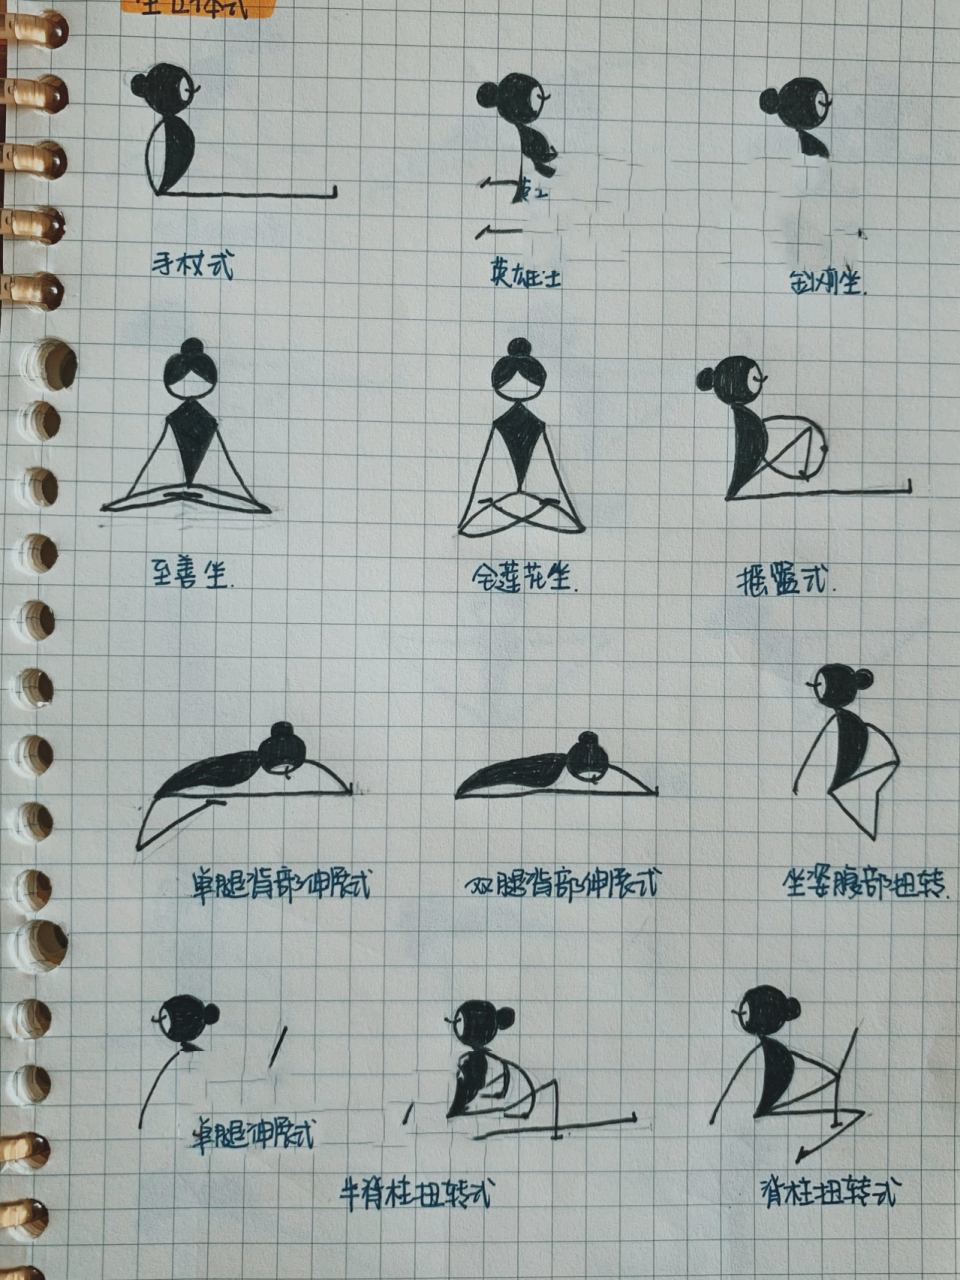 手杖式
英雄
金刚坐.
至善坐.
全莲花坐.
摇篮式.
单腿背部伸展式
双腿背部伸展式
坐姿腹部扭转.
单腿伸展式
半脊柱扭转式
脊柱扭转式